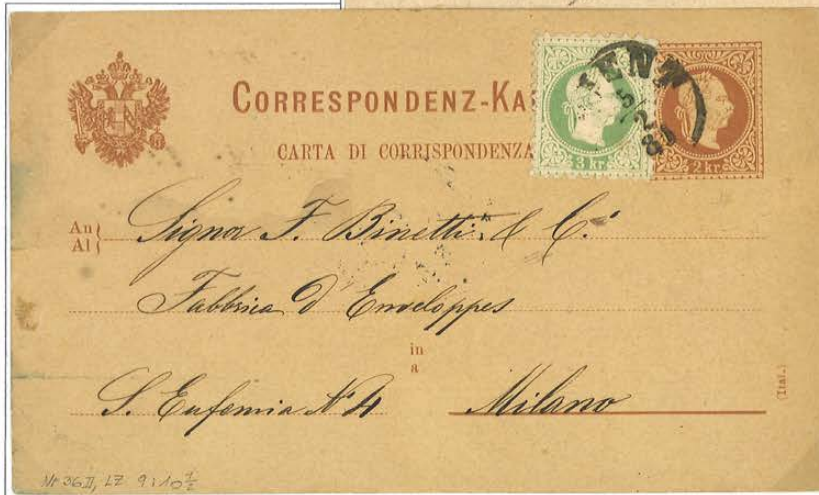 CORRESPONDENZ-KA
CARTA DI CORRISPONDENZA
3 kr.
2 kr.
5/2
An
Al
Signor F. Binetti & C.
Fabbrica d'Enveloppes
in
a
S. Eufemia N° 4
Milano
(Ital.)
N° 36 II, LZ 9:10½